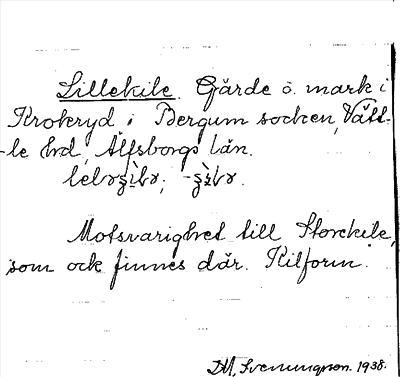 Lillekile. Gärde o. mark i
Krokryd i Bergum socken, Vätt-
-le hrd, Älfsborgs län.
Motsvarighet till Storekile,
som ock finnes där. Kilform.
Svenungson. 1938.